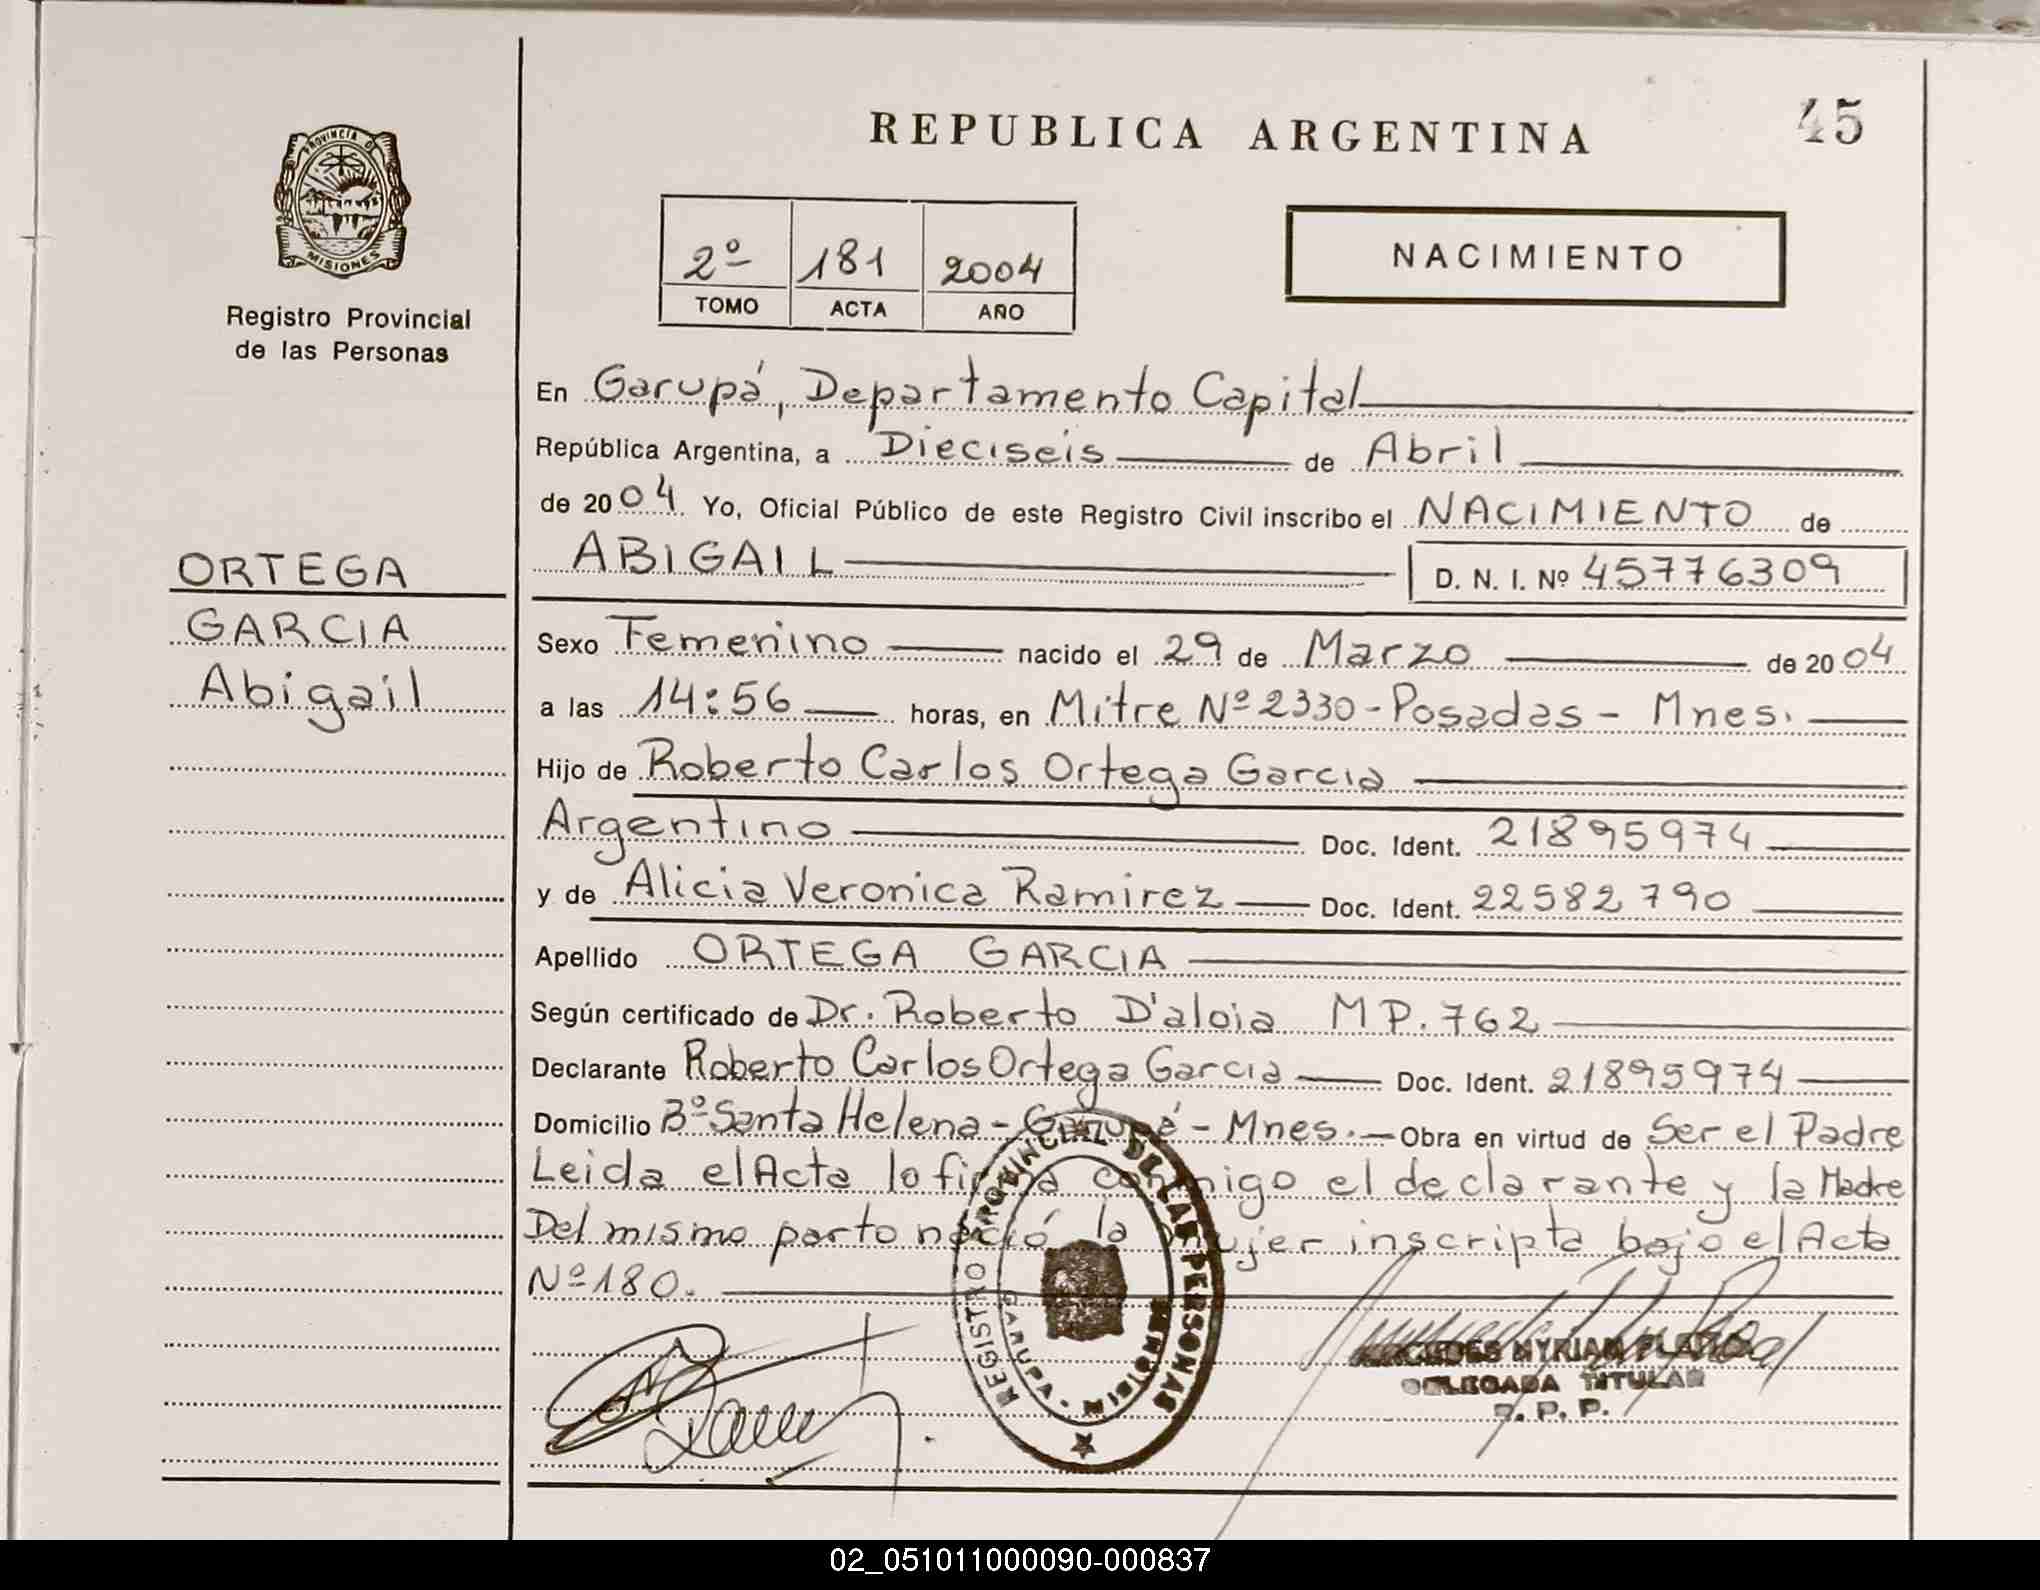 REPUBLICA ARGENTINA
45
PROVINCIA D
MISIONES
Registro Provincial
de las Personas
2º 181 2004
TOMO ACTA AÑO
NACIMIENTO
En Garupá, Departamento Capital
República Argentina, a Dieciseis de Abril
de 2004 Yo, Oficial Público de este Registro Civil inscribo el NACIMIENTO de
ABIGAIL D. N. I. Nº 45776309
ORTEGA
GARCIA
Abigail
Sexo Femenino nacido el 29 de Marzo de 2004
a las 14:56 horas, en Mitre Nº 2330 - Posadas - Mnes.
Hijo de Roberto Carlos Ortega Garcia
Argentino Doc. Ident. 21895974
y de Alicia Veronica Ramirez Doc. Ident. 22582790
Apellido ORTEGA GARCIA
Según certificado de Dr. Roberto D'aloia MP. 762
Declarante Roberto Carlos Ortega Garcia Doc. Ident. 21895974
Domicilio Bº Santa Helena - Garupá - Mnes. Obra en virtud de Ser el Padre
Leida el Acta lo firma conmigo el declarante y la Madre
Del mismo parto nació la mujer inscripta bajo el Acta
Nº 180.
REGISTRO PROVINCIAL DE LAS PERSONAS
GARUPA
MERCEDES MYRIAM
DELEGADA TITULAR
R. P. P.
02_051011000090-000837